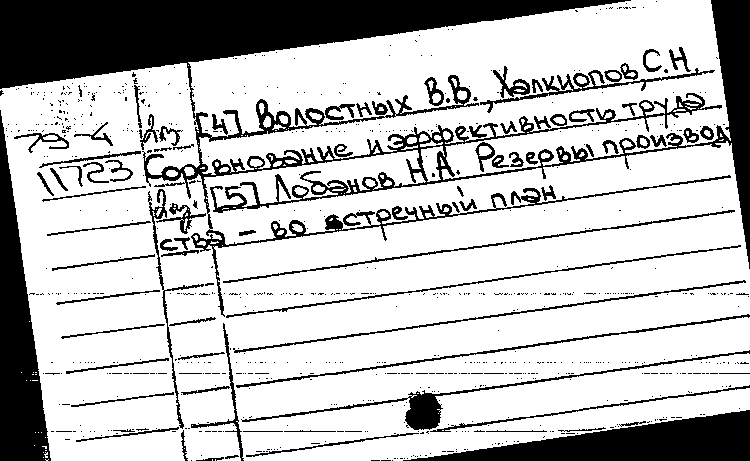 [4]. Волостных В.В., Халкиопов, С.Н.
79-4
Соревнование и эффективность труда
11723
[5] Лобанов. Н.А. Резервы производ
ства - во встречный план.